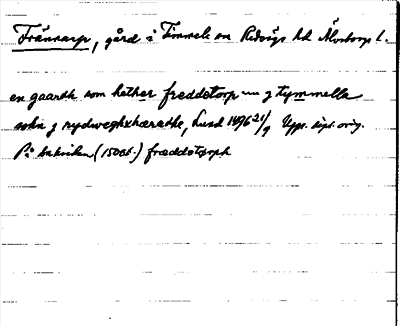 Frännarp, gård i Timmele sn Redvägs hd Älvsborgs l.
en gaardh som hether freddetorp i tymmella
sokn j rydweghxhæradhe, Lund 1496 21/9 Uppr. dipl. orig.
På baksidan (1500t.) fræddetorph